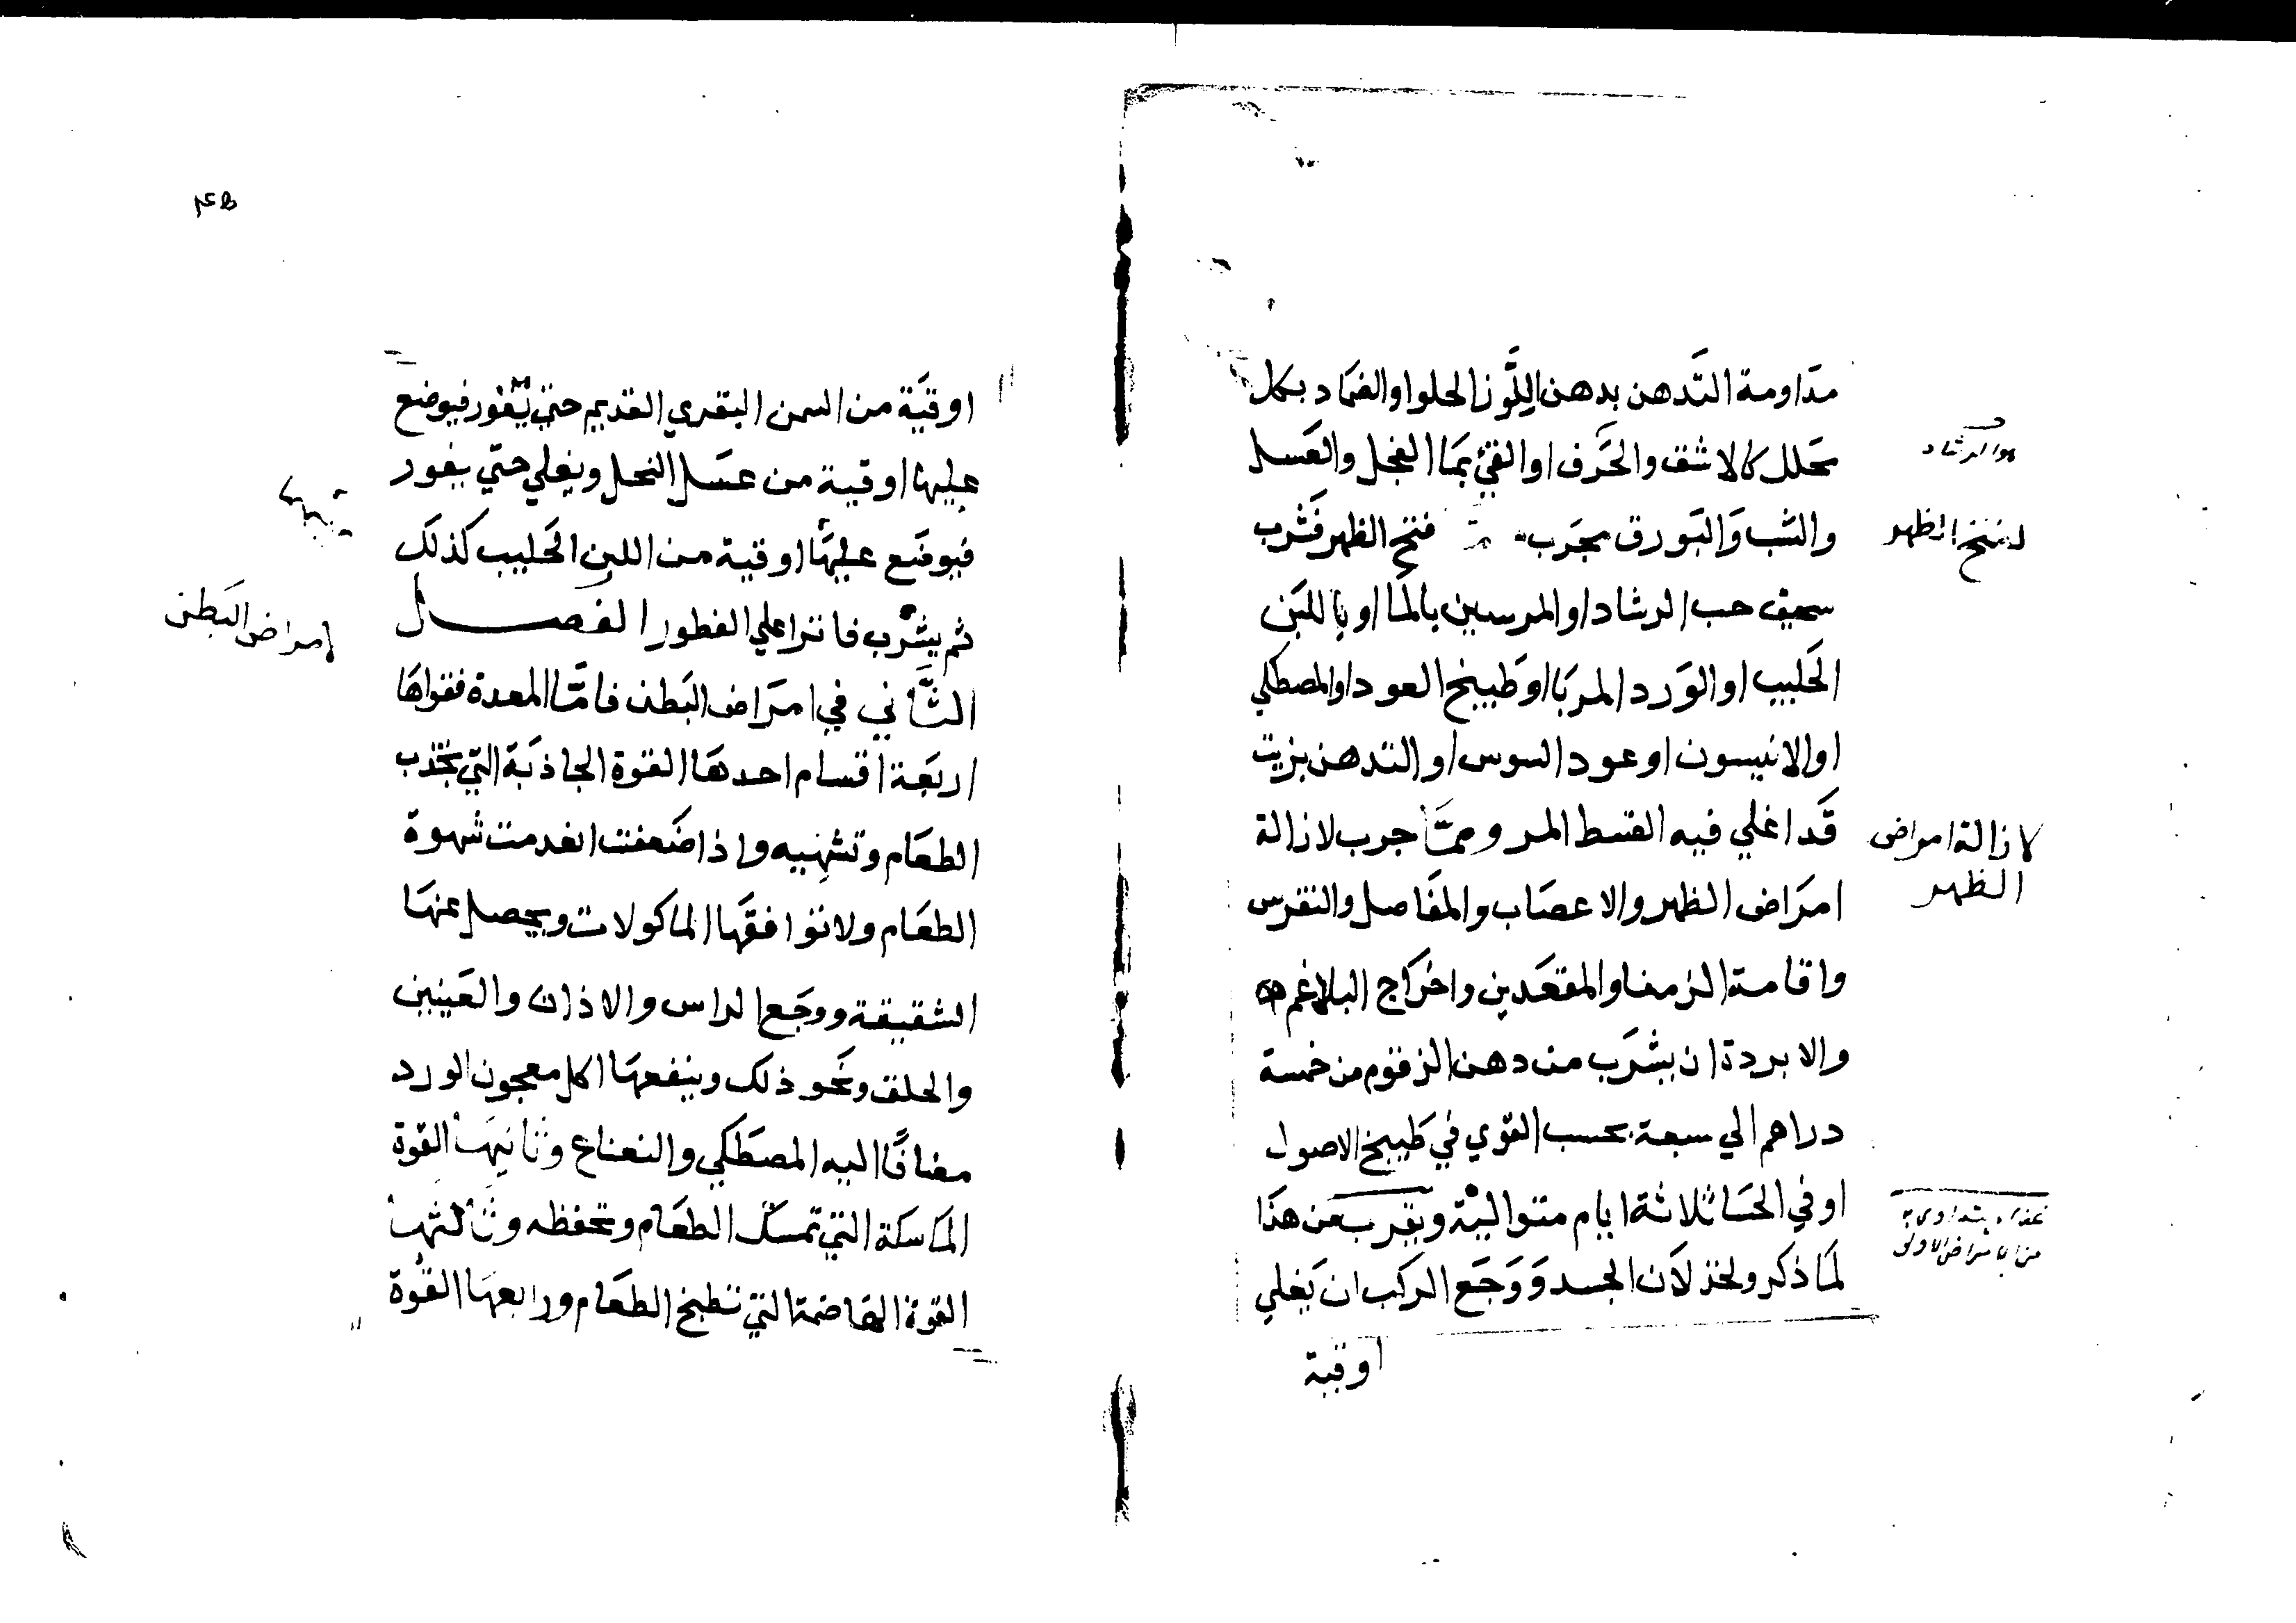 مدَاومة التَّدهن بدهن اللَّوز الحلوا والضمَاد بكل
محَلل كالاشق والحَرف او القئ بمَا الفجل والعَسل
والشب وَالبَورق مجَرب فتح الظهر فَشرب
سحيق حب الرشاد او المرسين بالمَا او باللبَن
الحَليب او الوَرد المربَا او طَبيخ العود او المصطكي
او الانيسون او عود السوس او التدهن بزيت
قَد اغلي فيه القسط المر وممَّا جرب لازالة
امرَاض الظهر والاعصَاب والمفَاصل والنقرس
واقامة الزمنا والمقعَدين واخرَاج البلاغم
والابردة ان يشرَب من دهن الزقوم من خمسة
دراهم الي سبعة بحسب القوي في طَبيخ الاصول
او في الحسَا ثلاثة ايام متوالية ويقرب من هذَا
لمَا ذكر ولخذلاَن الجسد وَوَجَع الركب ان يَغلي
اوقية
هو الرشاد
لفتح الظهر
لازالة امراض
الظهر
اوقيَة من السمن البقري القديم حتي يَّفور فيوضع
عليها اوقية من عسَل النحل ويغلي حتَي يفور
فيوضَع عليهَا اوقية من اللبن الحَليب كذلَك
ثم يشرَب فاترا علي الفطور الفصل
الثَّاني في امرَاض البَطن فامَّا المعدة فقواهَا
اربَعة اقسام احدهَا القوة الجاذبَة التي تجذب
الطعَام وتشهِيه واذا ضَعفت انعدمت شهوة
الطعَام ولا توافقهَا الماكولات ويحصل عنهَا
الشقيقة ووجَع الراس والاذان والعَينين
والحلق ونحَو ذلك وينفعهَا اكل معجون الورد
مضافًا اليه المصطَكي والنعناع وثانيهَا القوة
المَاسكة التي تمسك الطعَام وتحفظه وثالثهَا
القوة الهَاضمة التي تطبخ الطعَام ورابعهَا القوة
امراض البَطن